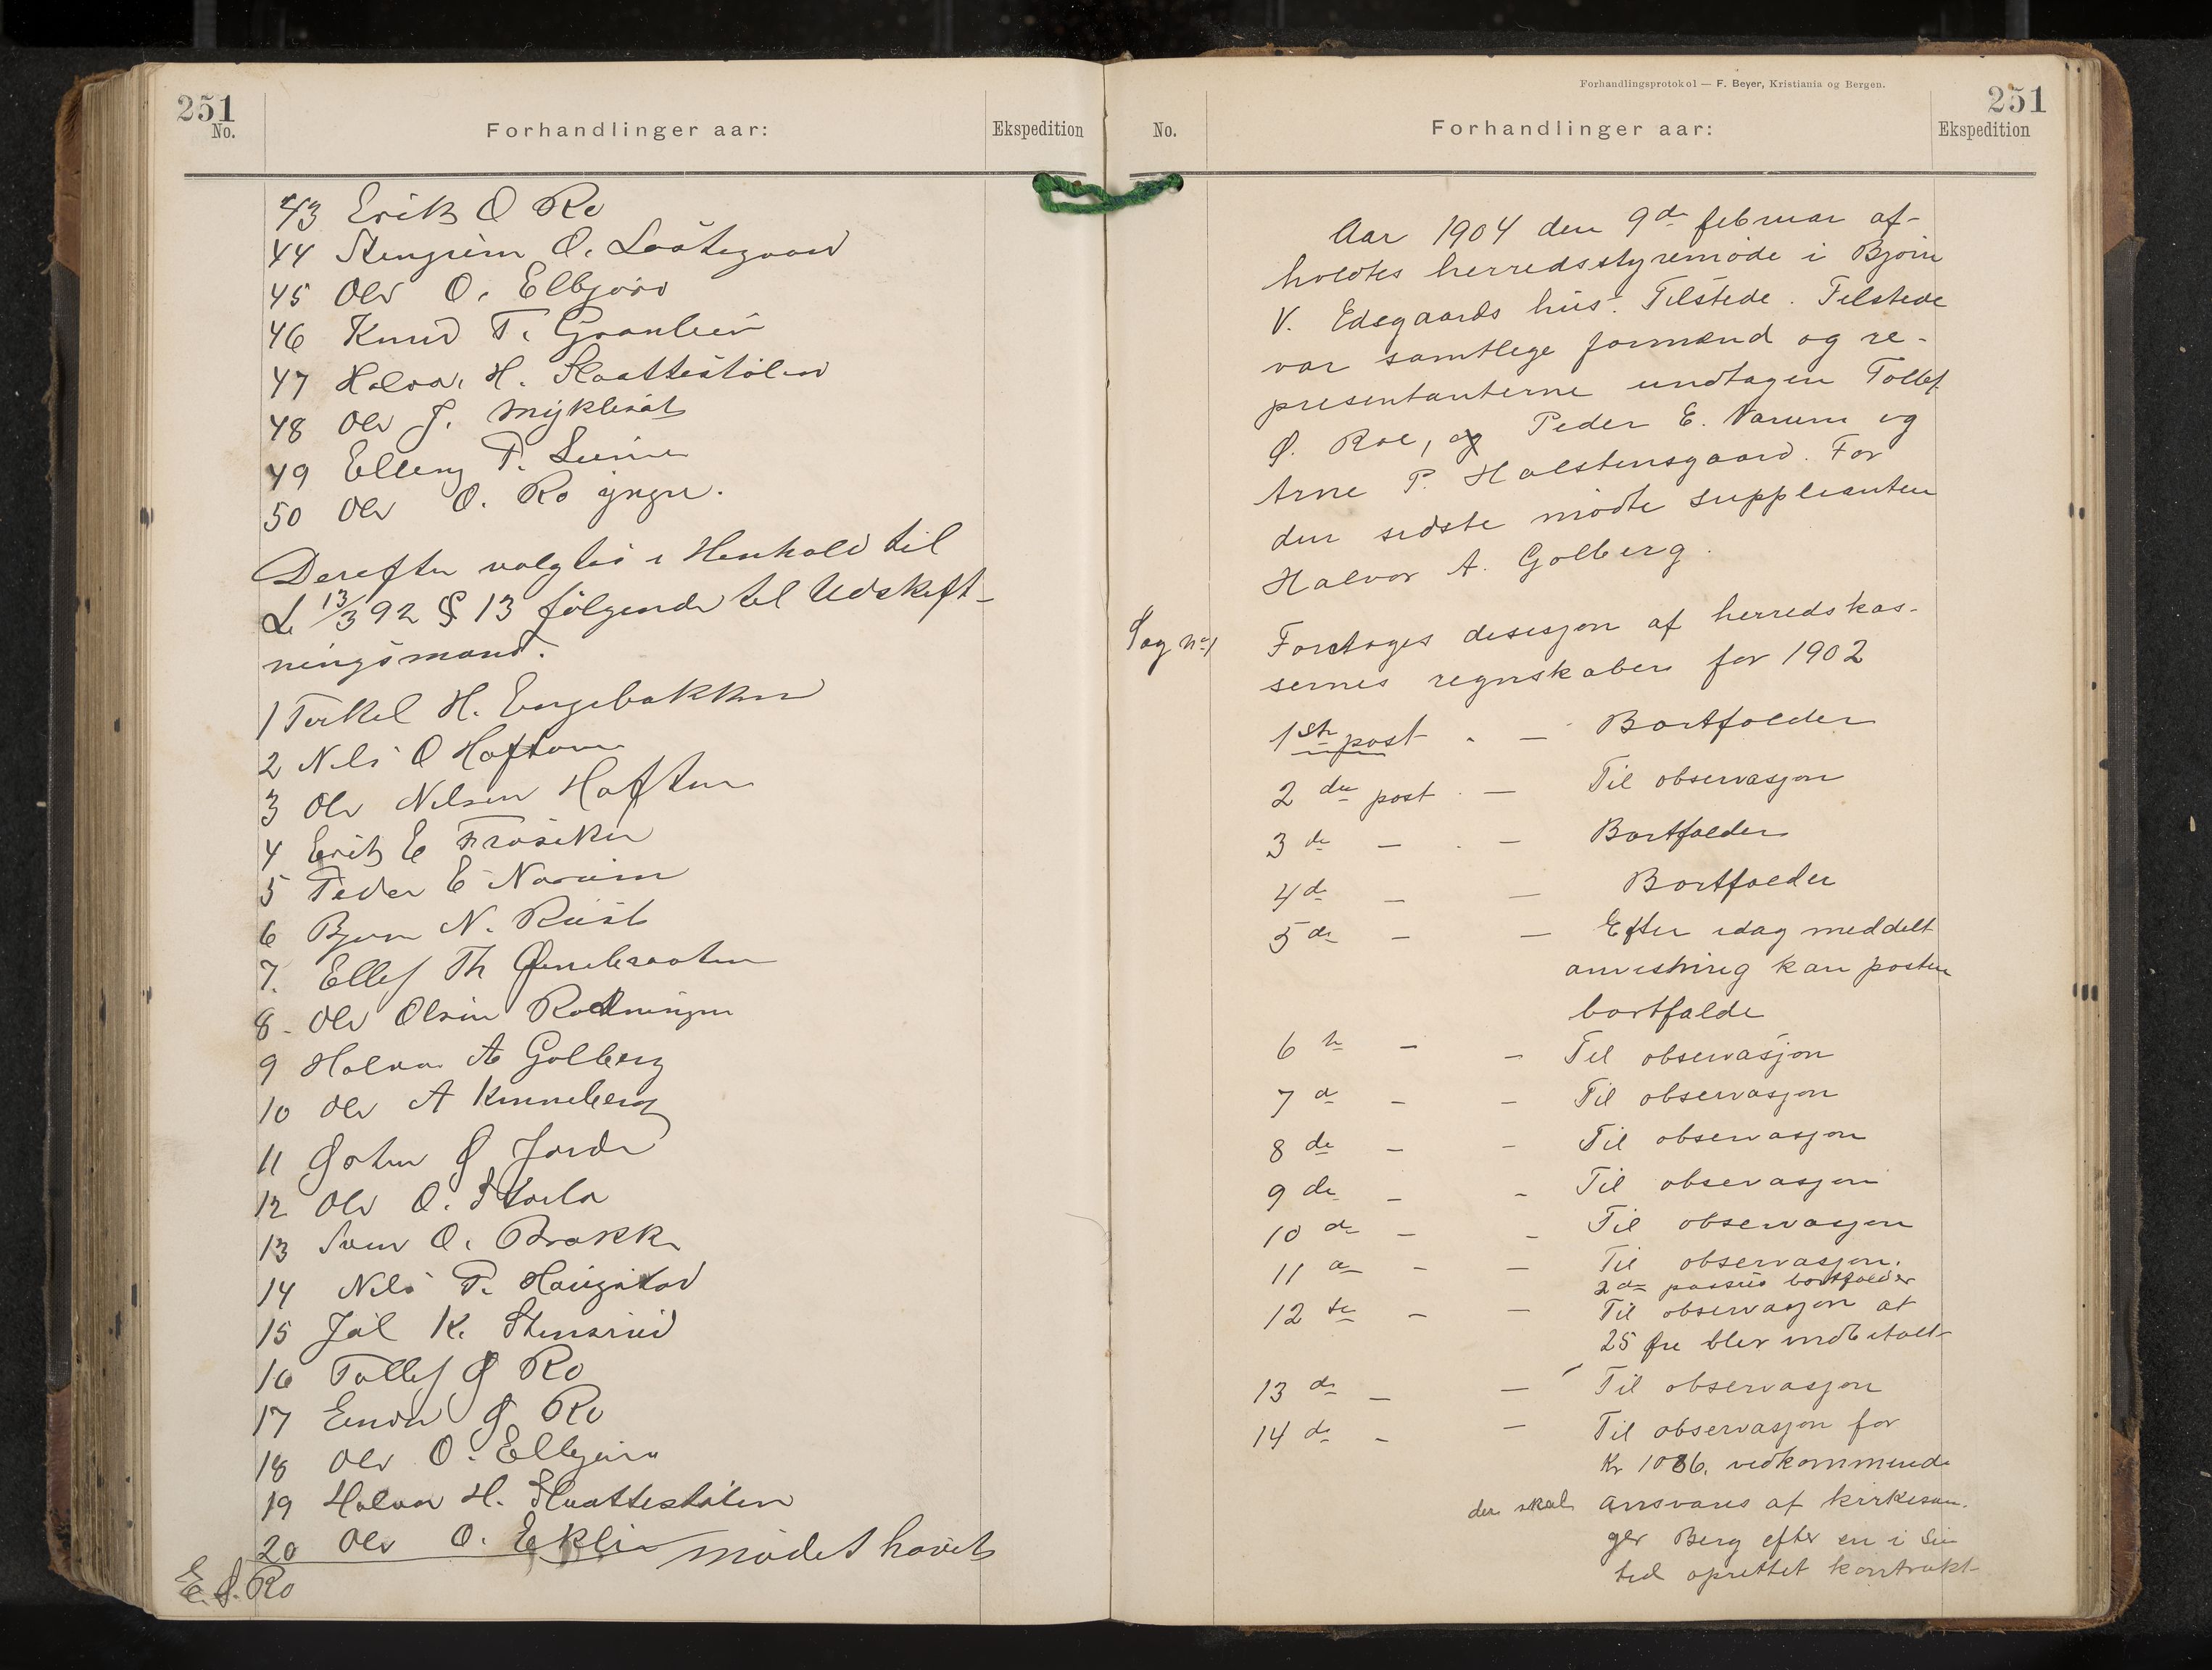 251
No.
Forhandlinger aar:
Ekspedition
43 Erik O Ro
44 Stengrim O. Laategaard
45 Ole O. Elbjørø
46 Knud T. Granlein
47 Halvor H. Slaattestølen
48 Ole J. Myklesæt
49 Elling T.
50 Ole O. Ro yngre.
Derefter valgtes i Henhold til
L 13/3 92 § 13 følgende til Udskift-
ningsmænd.
1 Terkel H. Engebakken
2 Nils O Haftorn
3 Ole Nilsen Haftun
4 Erik E Frøsaker
5 Peder E Narum
6 Bjørn N. Rust
7. Ellef Th
8. Ole Olsen Rodningen
9 Halvor A Golberg
10 Ole A Kinneberg
11
12 Ole O. Storla
13 Sven O. Brakke
14 Nils P. Haugstad
15 K. Stensrud
16 Tollef Ø Ro
17 Ø Ro
18 Ole O. Elbjørø
19 Halvor H. Slaattestølen
20 Ole O. Eklie mødet hævet
E. Ø. Ro
Forhandlingsprotokol — F. Beyer, Kristiania og Bergen.
251
No.
Forhandlinger aar:
Ekspedition
Aar 1904 den 9de februar af-
holdtes herredsstyremøde i Bjørn
V. Edsgaards hus. Tilstede. Tilstede
var samtlege formænd og re-
presentanterne undtagen Tollef
Ø. Roe, og Peder E. Narum og
Arne P. Halstensgaard. For
den sidste mødte supplianten
Halvor A. Golberg.
Sag no 1 Foretoges desisjon af herredskas-
sernes regnskaber for 1902
1ste post - — Bortfalder
2den post - — Til observasjon
3de — - — Bortfalder
4de — — Bortfalder
5de — — Efter idag meddelt
anvisning kan posten
bortfalde
6te — — Til observasjon
7de — — Til observasjon
8de — — Til observasjon
9de — — Til observasjon
10de — — Til observasjon
11te — — Til observasjon.
2den passus bortfalder
12te — — Til observasjon at
25 øre blev indbetalt
13de — — Til observasjon
14de — — Til observasjon for
Kr 1086. vedkommende
der skal ansvares af kirkesan-
ger Berg efter en i sin
tid oprettet kontrakt